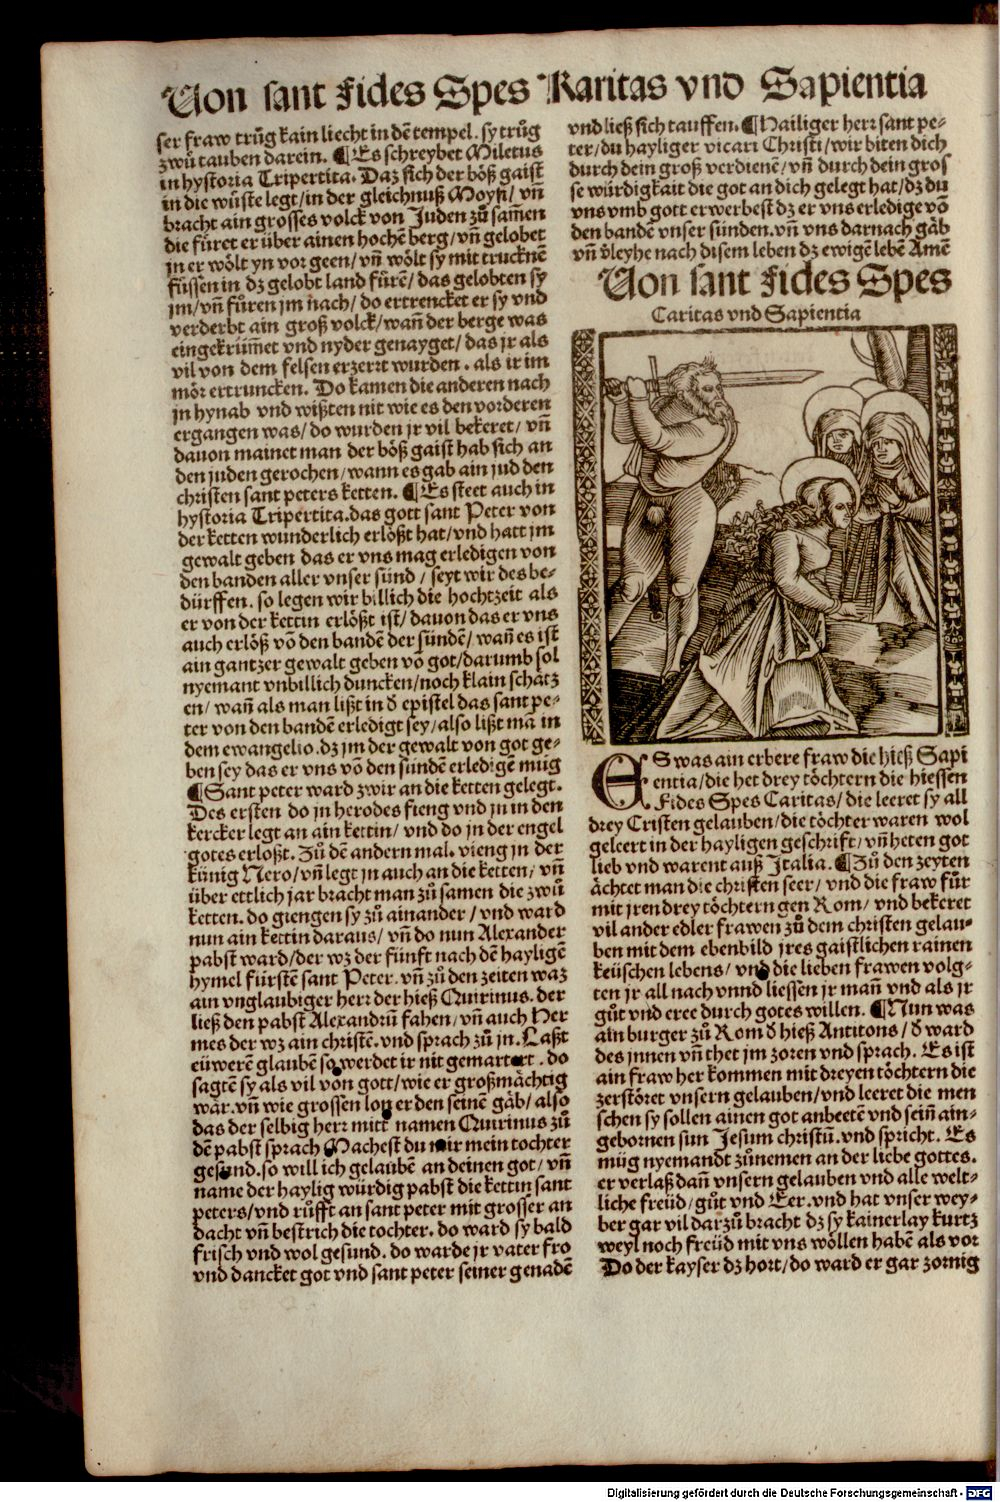 Uon sant Fides Spes Karitas vnd Sapientia
ser fraw trůg kain liecht in dē tempel. sy trůg
zwů tauben darein. ¶Es schreybet Miletus
in hystoria Tripertita. Daz sich der böß gaist
in die wůste legt/in der gleichnuß Moysi/ vñ
bracht ain grosses volck von Juden zů sam̄en
die fůret er über ainen hochē berg/vñ gelobet
jn er wölt yn vor geen/vñ wölt sy mit trucknē
fůssen in dz gelobt land fůrē/das gelobten sy
jm/vñ fůren jm nach/do ertrencket er sy vnd
verderbt ain groß volck/wañ der berge was
eingekrüm̄et vnd nyder genayget/das jr als
vil von dem felsen erzerrt wurden. als ir im
mör ertruncken. Do kamen die anderen nach
jn hynab vnd wißten nit wie es den vorderen
ergangen was/do wurden jr vil bekeret/vñ
dauon mainet man der böß gaist hab sich an
den juden gerochen/wann es gab ain jud den
christen sant peters ketten. ¶Es steet auch in
hystoria Tripertita.das gott sant Peter von
der ketten wunderlich erlößt hat/vnd hatt jm
gewalt geben das er vns mag erledigen von
den banden aller vnser sünd/seyt wir des be-
dürffen. so legen wir billich die hochtzeit als
er von der kettin erlößt ist/dauon das er vns
auch erlöß vō den bandē der sündē/wañ es ist
ain gantzer gewalt geben vō got/darumb sol
nyemant vnbillich duncken/noch klain schätz
en/wañ als man lißt in d̄ epistel das sant pe-
ter von den bandē erledigt sey/also lißt mā in
dem ewangelio.dz jm der gewalt von got ge-
ben sey das er vns vō den sünden erledigē müg
¶Sant peter ward zwir an die ketten gelegt.
Des ersten do jn herodes fieng vnd jn in den
kercker legt an ain kettin/vnd do jn der engel
gotes erloßt. Zů dē andern mal. vieng jn der
künig Nero/vñ legt jn auch an die ketten/vñ
über ettlich jar bracht man zů samen die zwů
ketten. do giengen sy zů ainander/vnd ward
nun ain kettin daraus/vñ do nun Alexander
pabst ward/der wz der fünft nach dē hayligē
hymel fürstē sant Peter.vñ zů den zeiten waz
ain vnglaubiger herr der hieß Quirinus. der
ließ den pabst Alexandrū fahen/vñ auch Her
mes der wz ain christē.vnd sprach zů jn.Laßt
eüwerē glaubē so werdet ir nit gemartert. do
sagtē sy als vil von gott/wie er großmächtig
wär.vñ wie grossen lon er den seinē gäb/also
das der selbig herr mitt namen Quirinus zů
dē pabst sprach Machest du mir mein tochter
gesund.so will ich gelaubē an deinen got/vñ
name der haylig würdig pabst die kettin sant
peters/vnd růfft an sant peter mit grosser an
dacht vñ bestrich die tochter. do ward sy bald
frisch vnd wol gesund. do warde jr vater fro
vnd dancket got vnd sant peter seiner genadē
vnd ließ sich tauffen. ¶Hailiger herr sant pe-
ter/du hayliger vicari Christi/wir biten dich
durch dein groß verdienē/vñ durch dein gros
se würdigkait die got an dich gelegt hat/dz du
vns vmb gott erwerbest dz er vns erledige vō
den bandē vnser sünden.vñ vns darnach gäb
vñ v̄leyhe nach disem leben dz ewigē lebē Amē
Uon sant Fides Spes
Caritas vnd Sapientia
ES was ain erbere fraw die hieß Sapi
entia/die het drey töchtern die hiessen
Fides Spes Caritas/die leeret sy all
drey Cristen gelauben/die töchter waren wol
geleert in der hayligen geschrift/vñ heten got
lieb vnd warent auß Italia. ¶Zů den zeyten
ächtet man die christen seer/vnd die fraw fůr
mit jren drey töchtern gen Rom/vnd bekeret
vil ander edler frawen zů dem christen gelau-
ben mit dem ebenbild jres gaistlichen rainen
keüschen lebens/vnd die lieben frawen volg-
ten jr all nach vnnd liessen jr mañ vnd als jr
gůt vnd eree durch gotes willen. ¶Nun was
ain burger zů Rom d̄ hieß Antitons/d̄ ward
des jnnen vñ thet jm zoren vnd sprach. Es ist
ain fraw her kommen mit dreyen töchtern die
zerstöret vnsern gelauben/vnd leeret die men
schen sy sollen ainen got anbeetē vnd seiñ ain-
gebornen sun Jesum christū.vnd spricht. Es
müg nyemandt zůnemen an der liebe gottes.
er verlaß dañ vnsern gelauben vnd alle welt-
liche freüd/gůt vnd Eer.vnd hat vnser wey-
ber gar vil darzů bracht dz sy kainerlay kurtz
weyl noch freüd mit vns wöllen habē als vor
Do der kayser dz hort/do ward er gar zornig
Digitalisierung gefördert durch die Deutsche Forschungsgemeinschaft - DFG